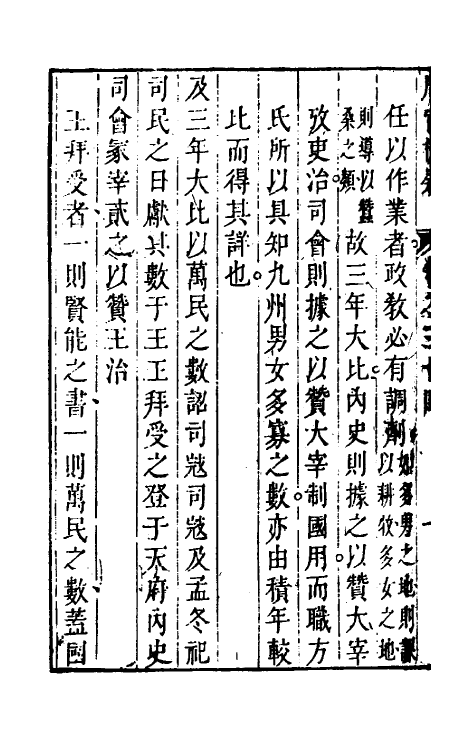 任以作業者政敎必有調劑如多男之地則課以耕牧多女之地
則導以蠶桑之類故三年大比內史則據之以贊大宰
攷吏治司會則據之以贊大宰制國用而職方
氏所以具知九州男女多寡之數亦由積年較
此而得其詳也
及三年大比以萬民之數詔司寇司寇及孟冬祀
司民之日獻其數于王王拜受之登于天府內史
司會冢宰貳之以贊王治
王拜受者一則賢能之書一則萬民之數蓋國